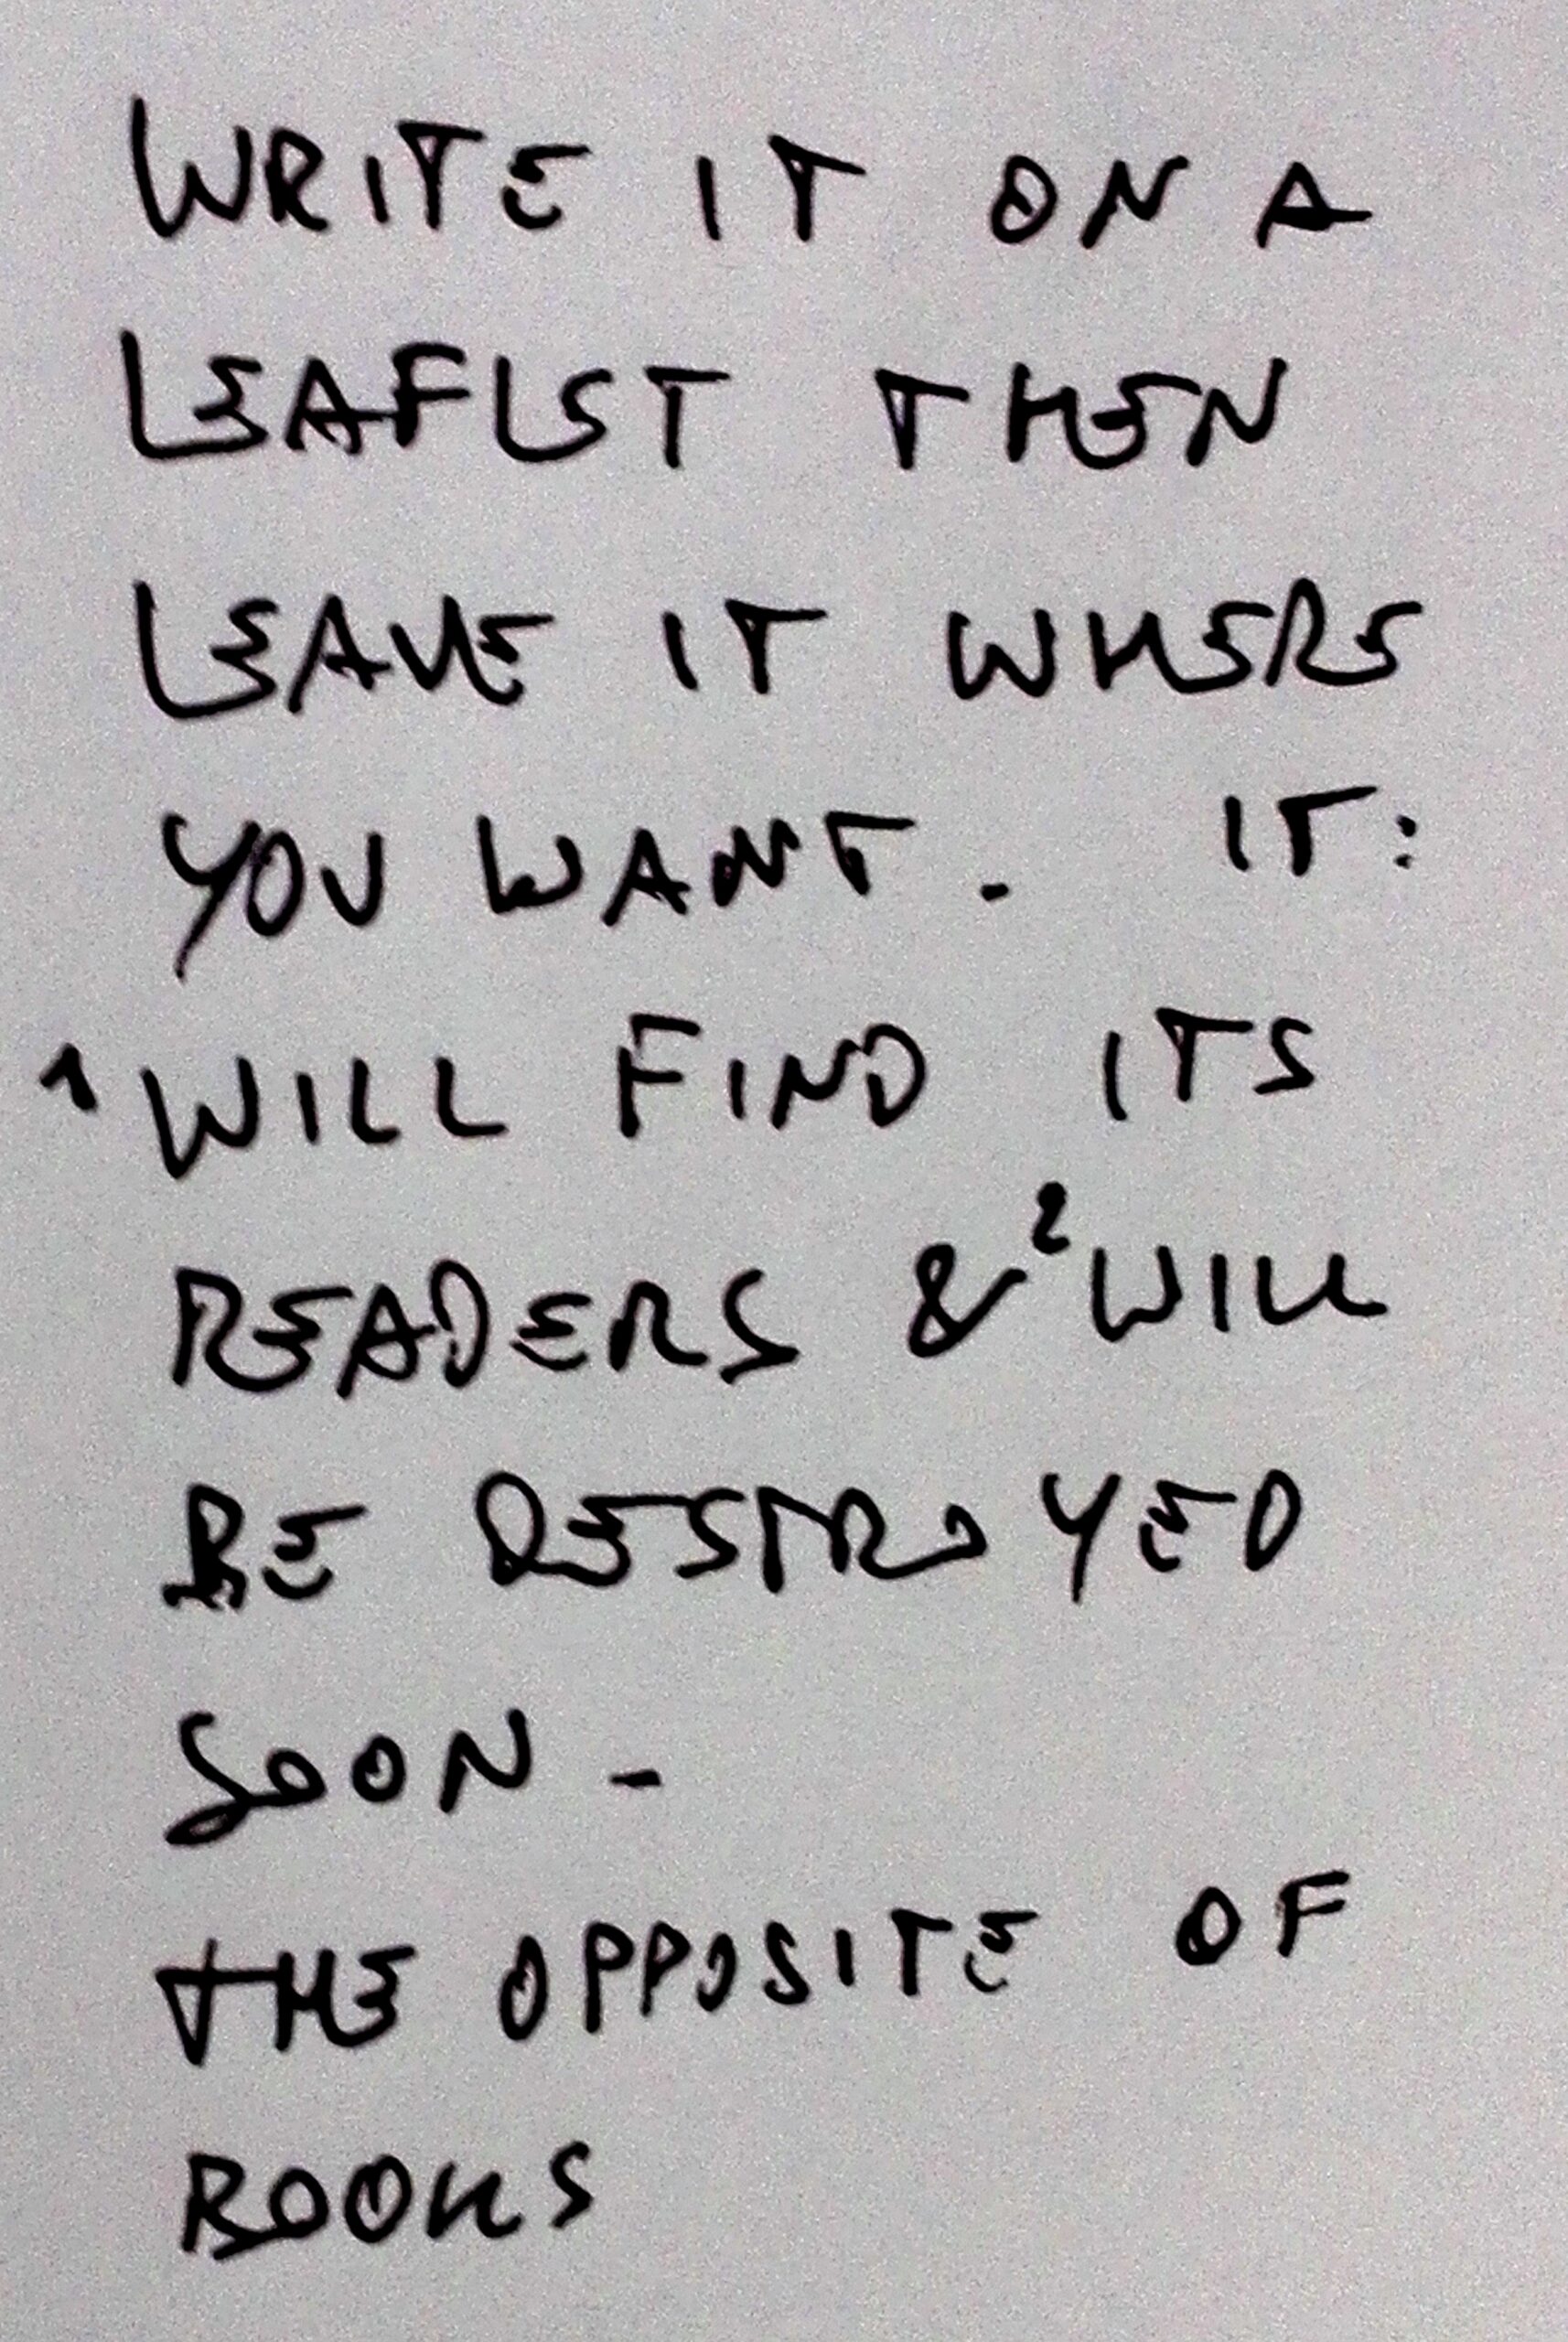 WRITE IT ON A
LEAFLET THEN
LEAVE IT WHERE
YOU WANT. IT:
¹WILL FIND ITS
READERS & ²WILL
BE DESTROYED
SOON -
THE OPPOSITE OF
BOOKS